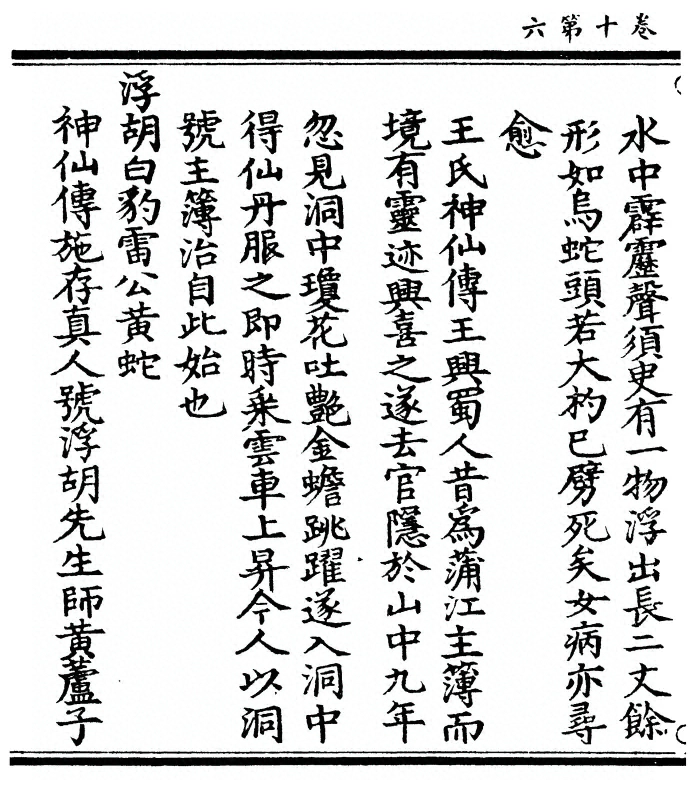 卷十第六
水中霹靂聲須史有一物浮出長二丈餘
形如烏蛇頭若大杓已劈死矣女病亦尋
愈
王氏神仙傳王興蜀人昔爲蒲江主簿而
境有靈迹興喜之遂去官隱於山中九年
忽見洞中瓊花吐艷金蟾跳躍遂入洞中
得仙丹服之即時乗雲車上昇今人以洞
號主簿治自此始也
浮胡白豹雷公黄蛇
神仙傳施存真人號浮胡先生師黄蘆子